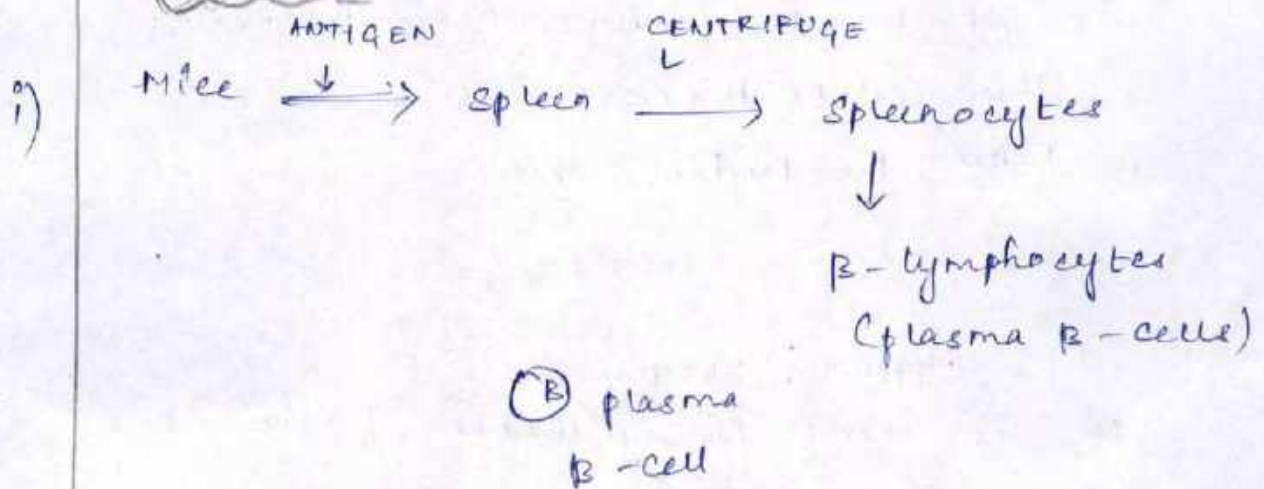 ANTIGEN CENTRIFUGE
i) Mice → Spleen → Splenocytes
↓
B-lymphocytes
(plasma B-cells)
B plasma
B-cell